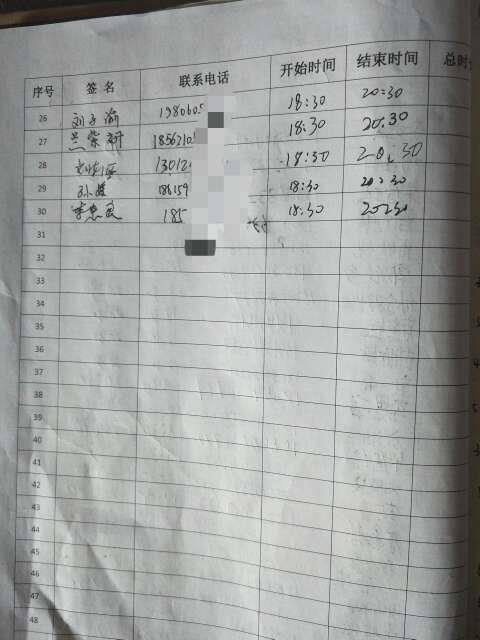 序号 签名 联系电话 开始时间 结束时间 总时
26 刘子渝 1980605 18:30 20:30
27 兰紫研 1856210 18:30 20:30
28 13012 18:30 20:30
29 186159 18:30 20:30
30 李忠良 185 18:30 20:30
31
32
33
34
35
36
37
38
39
40
41
42
43
44
45
46
47
48